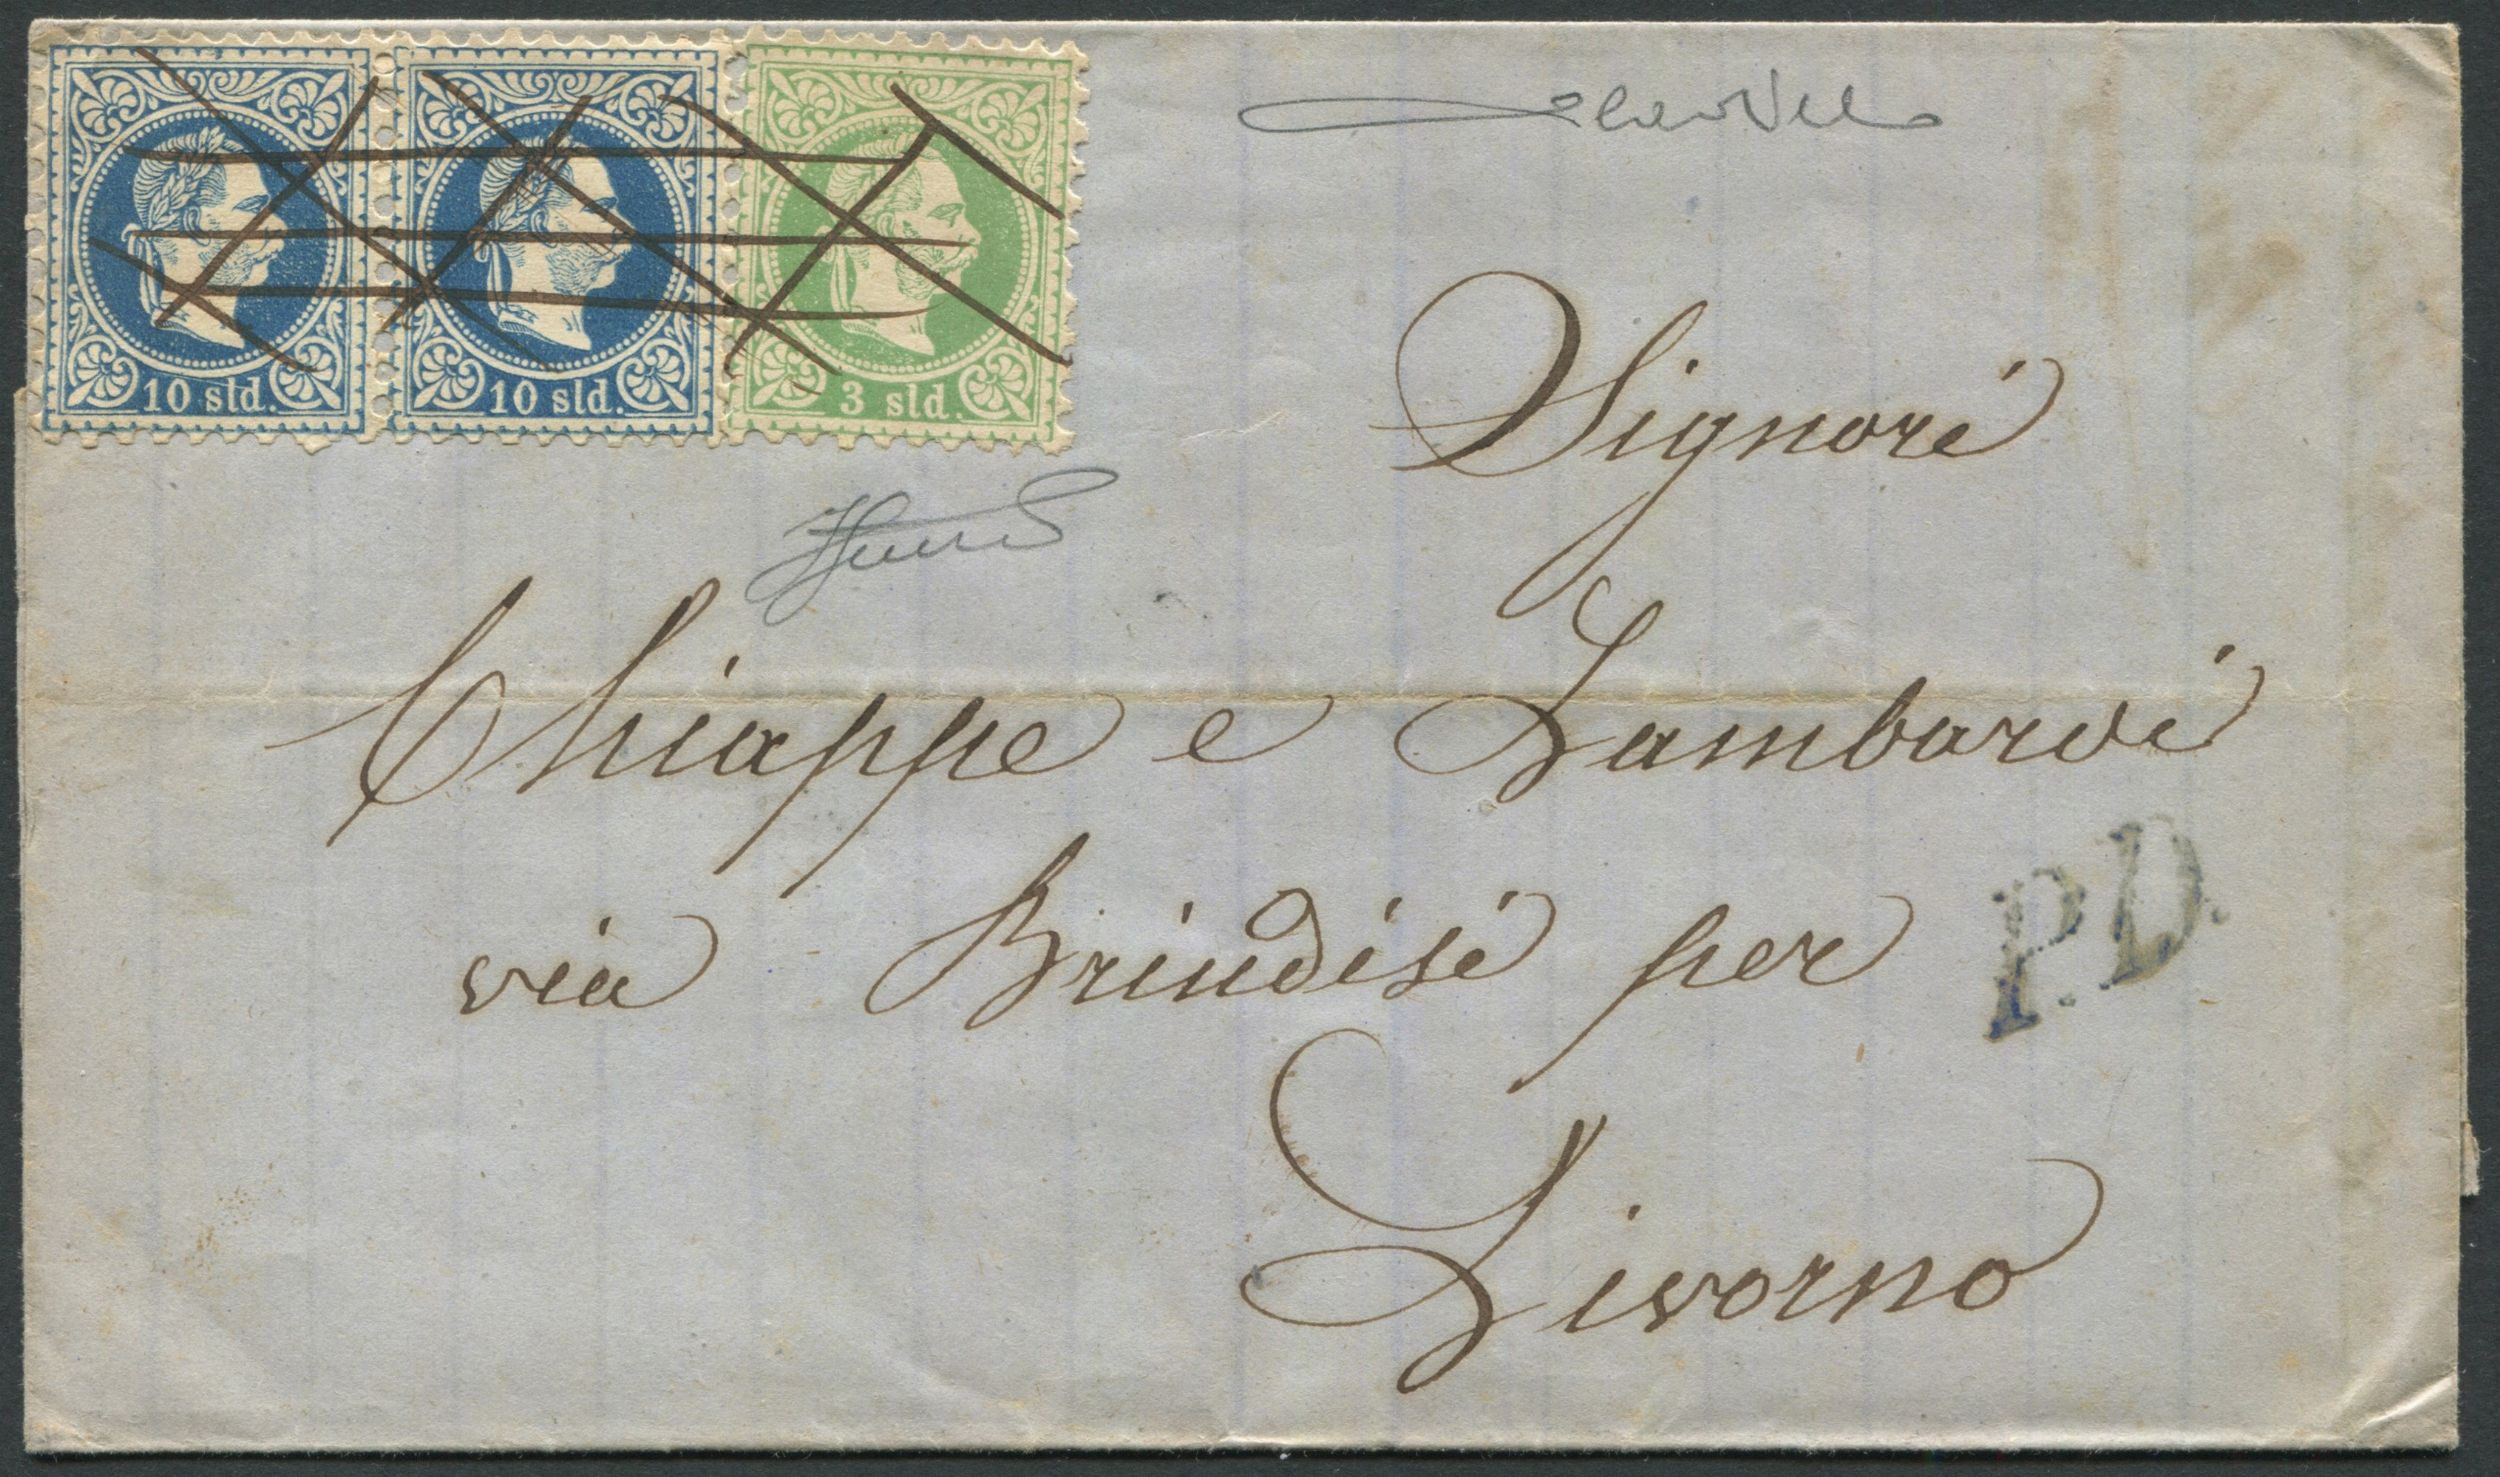 10 sld.
10 sld.
3 sld.
Signori
Chiappe e Lambardi
via Brindisi per
P.D.
Livorno